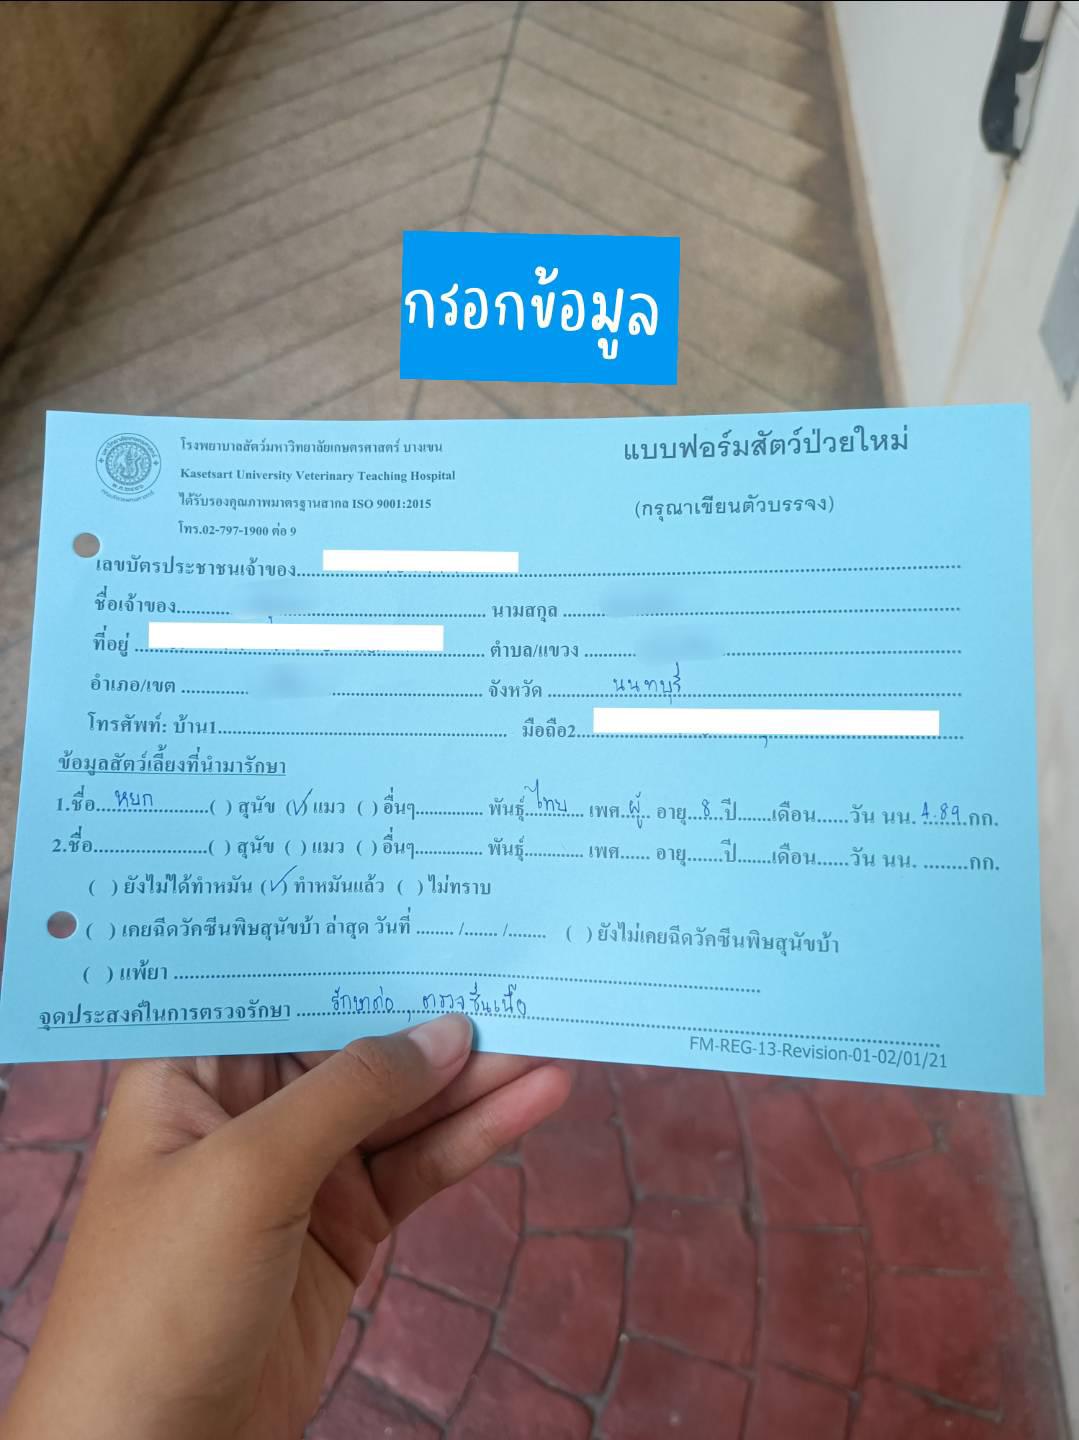 กรอกข้อมูล
โรงพยาบาลสัตว์มหาวิทยาลัยเกษตรศาสตร์ บางเขน
แบบฟอร์มสัตว์ป่วยใหม่
Kasetsart University Veterinary Teaching Hospital
ได้รับรองคุณภาพมาตรฐานสากล ISO 9001:2015
(กรุณาเขียนตัวบรรจง)
โทร.02-797-1900 ต่อ 9
เลขบัตรประชาชนเจ้าของ
ชื่อเจ้าของ นามสกุล
ที่อยู่ ตำบล/แขวง
อำเภอ/เขต จังหวัด นนทบุรี
โทรศัพท์: บ้าน1 มือถือ2
ข้อมูลสัตว์เลี้ยงที่นำมารักษา
1.ชื่อ หยก ( ) สุนัข (✓) แมว ( ) อื่นๆ พันธุ์ ไทย เพศ ผู้ อายุ 8 ปี เดือน วัน นน. 4.89 กก.
2.ชื่อ ( ) สุนัข ( ) แมว ( ) อื่นๆ พันธุ์ เพศ อายุ ปี เดือน วัน นน. กก.
( ) ยังไม่ได้ทำหมัน (✓) ทำหมันแล้ว ( ) ไม่ทราบ
( ) เคยฉีดวัคซีนพิษสุนัขบ้า ล่าสุด วันที่ / / ( ) ยังไม่เคยฉีดวัคซีนพิษสุนัขบ้า
( ) แพ้ยา
จุดประสงค์ในการตรวจรักษา รักษาต่อ , ตรวจชิ้นเนื้อ
FM-REG-13-Revision-01-02/01/21